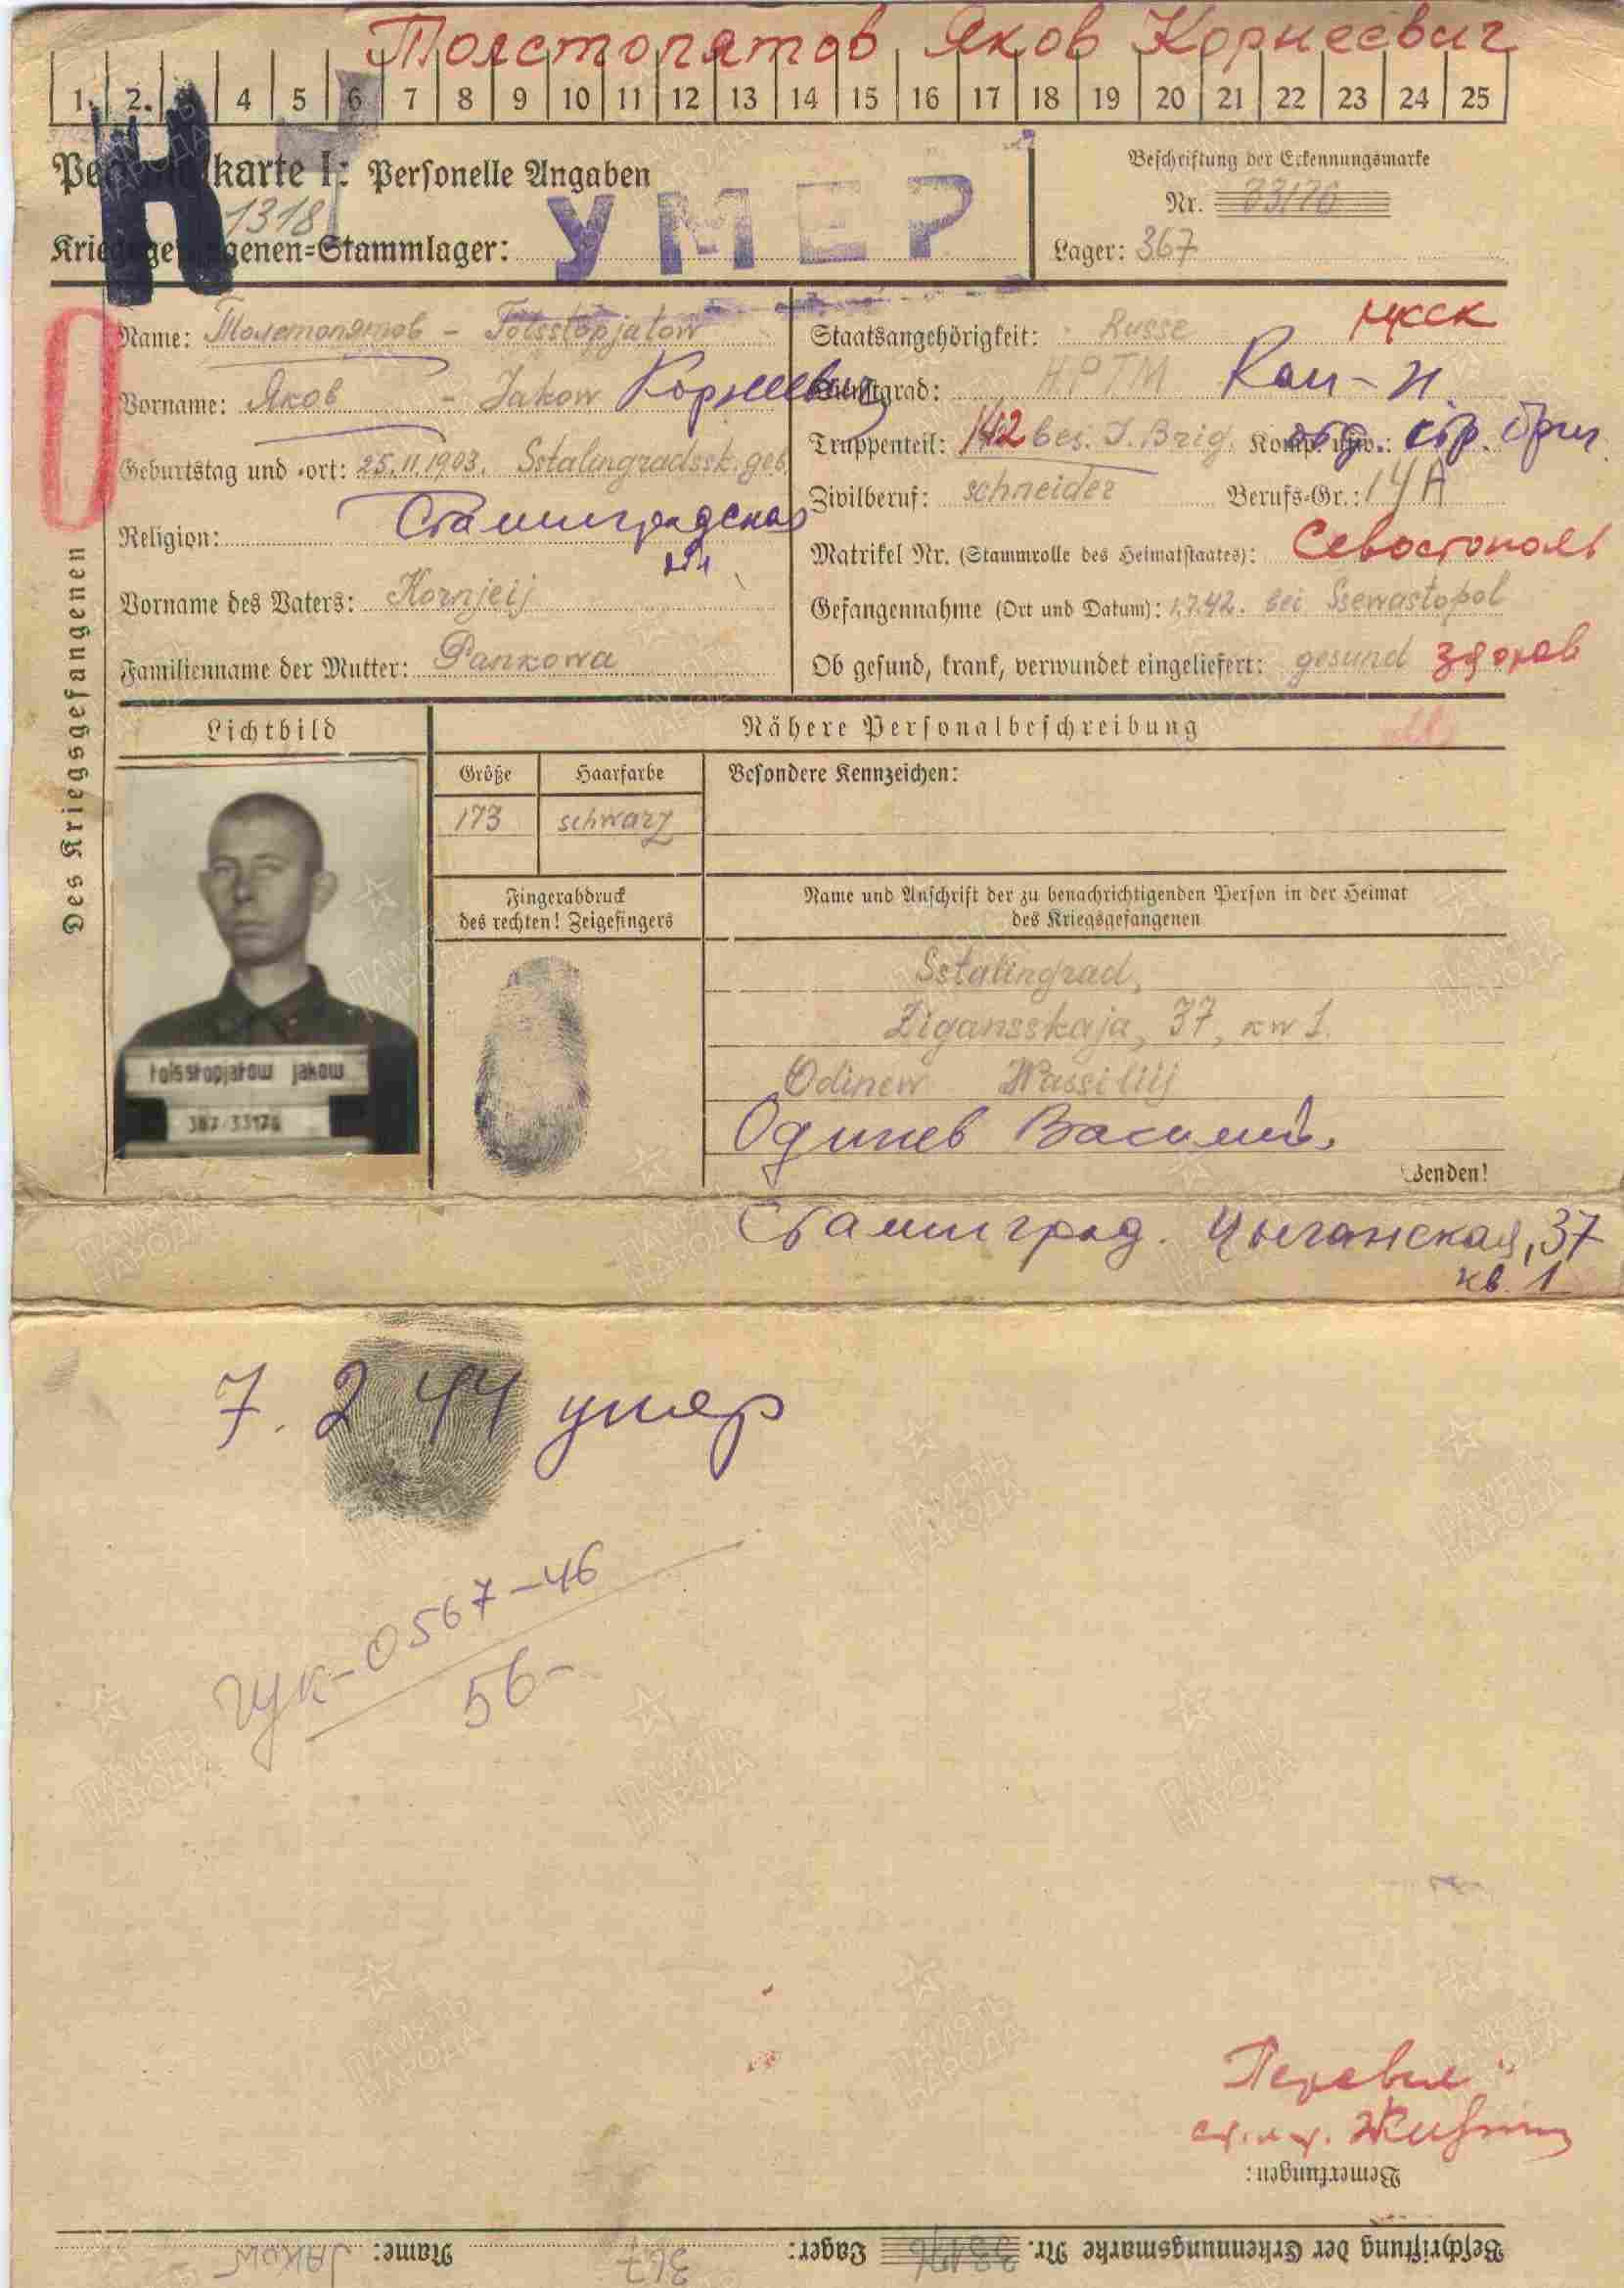 Толстопятов Яков Корнеевич
1. 2. 3 4 5 6 7 8 9 10 11 12 13 14 15 16 17 18 19 20 21 22 23 24 25
Н
Personalkarte I: Personelle Angaben
Beschriftung der Erkennungsmarke
1318
УМЕР
Nr. 33176
Kriegsgefangenen=Stammlager:
Lager: 367
Des Kriegsgefangenen
Name: Толстопятов - Tolsstopjatow
Vorname: Яков - Jakow Корнеевич
Geburtstag und -ort: 25.11.1903. Sstalingradssk. geb.
Religion: Сталинградская
обл
Vorname des Vaters: Kornjeij
Familienname der Mutter: Pankowa
Staatsangehörigkeit: Russe
Dienstgrad: HPTM Кап-н
Truppenteil: 142 bes. I. Brig. Komp. usw.: отд. стр. бриг.
Zivilberuf: schneider Berufs-Gr.: 14A
Matrikel Nr. (Stammrolle des Heimatstaates): Севастополь
Gefangennahme (Ort und Datum): 1.7.42. bei Ssewastopol
Ob gesund, krank, verwundet eingeliefert: gesund здоров
Lichtbild
Nähere Personalbeschreibung
Größe Haarfarbe Besondere Kennzeichen:
173 schwarz
Fingerabdruck
des rechten! Zeigefingers
Name und Anschrift der zu benachrichtigenden Person in der Heimat
des Kriegsgefangenen
tolsstopjatow jakow
367 33176
Sstalingrad,
Zigansskaja, 37, kw 1.
Odinew Wassilij
Одинев Василий.
Wenden!
Сталинград. Цыганская, 37
кв. 1
7. 2 44 умер
ГУК-0567-46
56-
Перевел
Bemerkungen:
Beschriftung der Erkennungsmarke Nr. 33176 Lager: 367 Name: JAKOW